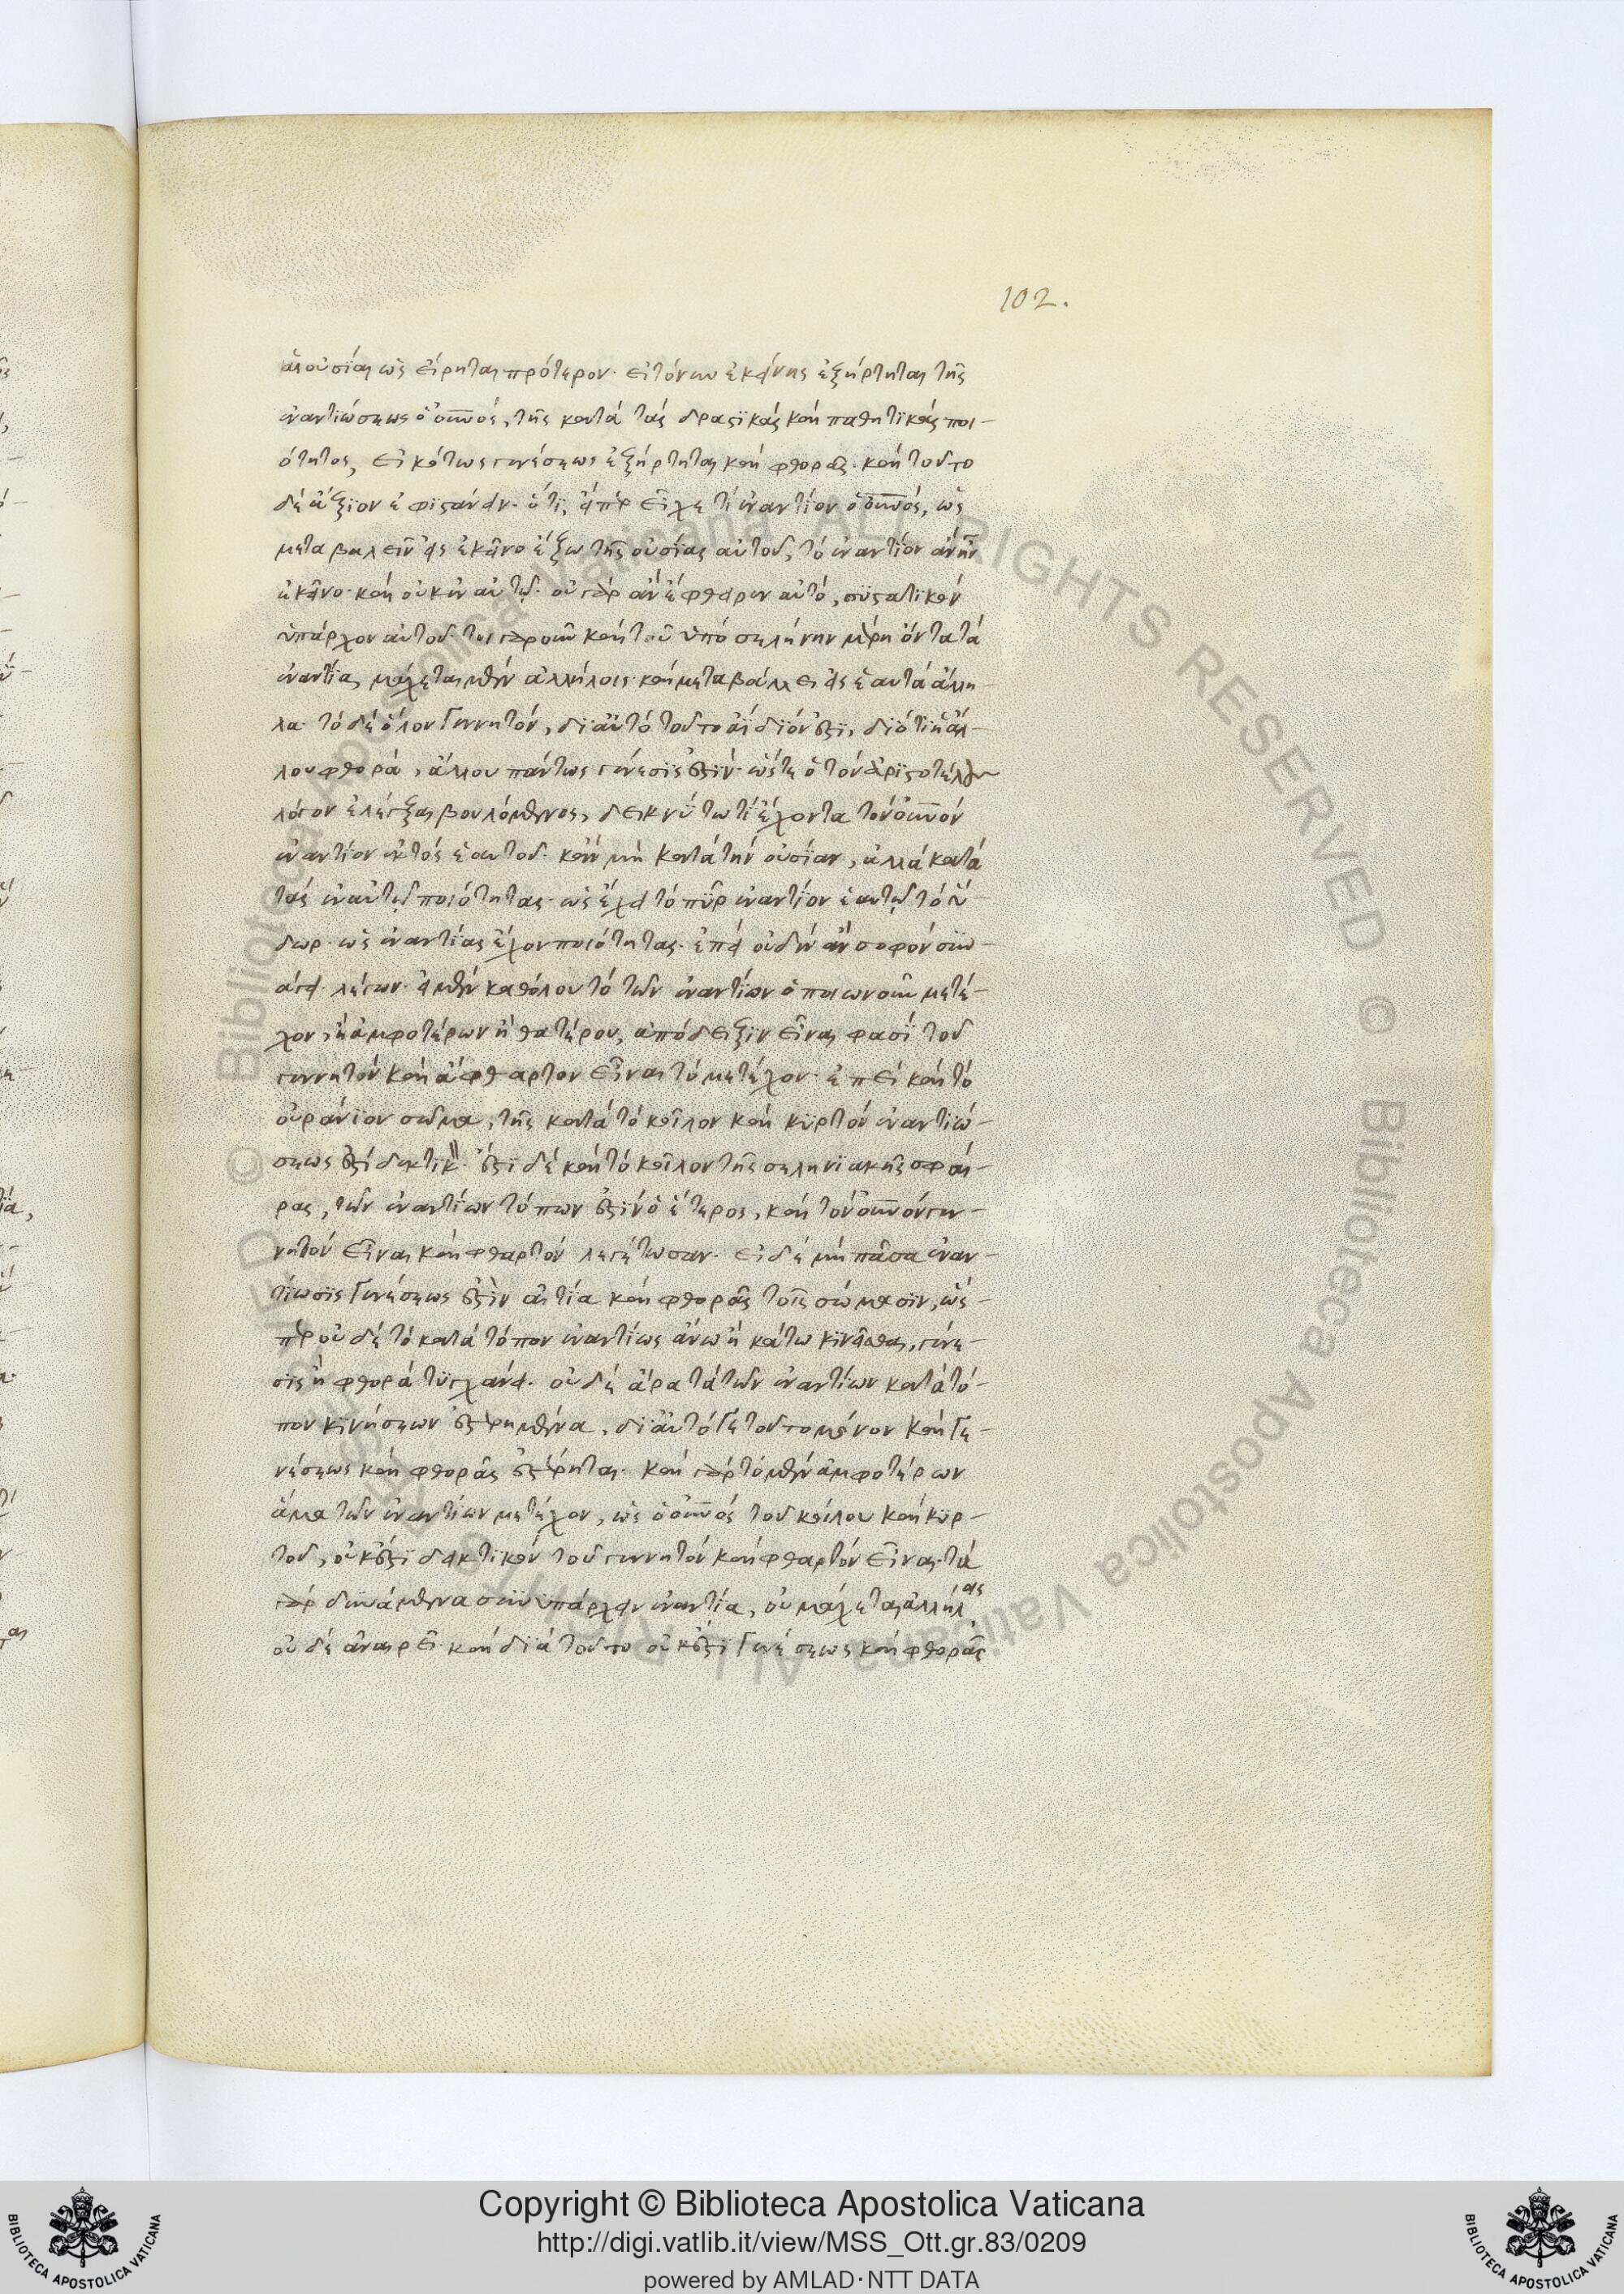 102.
αι οὐσίαι ὡς εἴρηται πρότερον. εἰ τοίνυν ἐκείνης ἐξήρτηται τῆς
ἐναντιώσεως ὁ οὐνος, τῆς κατὰ τὰς δραστικὰς καὶ παθητικὰς ποι-
ότητος, εἰκότως γενέσεως ἐξήρτηται καὶ φθορᾶς. καὶ τοῦτο
δὲ ἄξιον ἐφιστάνειν. ὅτι, εἴπερ εἶχέ τι ἐναντίον ὁ οὐνος, ὡς
μεταβαλεῖν εἰς ἐκεῖνο ἔξω τῆς οὐσίας αὐτοῦ, τὸ ἐναντίον ἂν ἦν
ἐκεῖνο. καὶ οὐκ ἐν αὐτῷ. οὐ γὰρ ἂν ἔφθειρεν αὐτό, συστατικὸν
ὑπάρχον αὐτοῦ. καὶ τοῦ ὑπὸ σελήνην μέρη ὄντα τὰ
ἐναντία, μάχεται μὲν ἀλλήλοις. καὶ μεταβάλλει εἰς ἑαυτὰ ἄλλη-
λα. τὸ δὲ ὅλον γεννητόν, δι αὐτὸ τοῦτο ἀΐδιόν ἐστι, διότι ἡ ἄλ-
λου φθορά, ἄλλου πάντως γένεσίς ἐστιν. ὥστε ὁ τὸν ἀριστοτέλην
λόγον ἐλέγξαι βουλόμενος, δεικνύτω τι ἔχοντα τὸν οὐνον
ἐναντίον ἐκτὸς ἑαυτοῦ. κἂν μὴ κατὰ τὴν οὐσίαν, ἀλλὰ κατὰ
τὰς ἐν αὐτῷ ποιότητας. ὡς ἔχει τὸ πῦρ ἐναντίον ἑαυτῷ τὸ ὕ-
δωρ. ὡς ἐναντίας ἔχον ποιότητας. ἐπεὶ οὐδὲν ἂν σοφὸν συν-
άγει λέγων. εἰ μὲν καθόλου τὸ τῶν ἐναντίων ὁποιωνοῦν μετέ-
χον, ἢ ἀμφοτέρων ἢ θατέρου, ἀπόδειξιν εἶναι φασὶ τοῦ
γεννητὸν καὶ ἄφθαρτον εἶναι τὸ μετέχον. ἐπεὶ καὶ τὸ
οὐράνιον σῶμα, τῆς κατὰ τὸ κοῖλον καὶ κυρτὸν ἐναντιώ-
σεώς ἐστι δεκτικ. ἔστι δὲ καὶ τὸ κοῖλον τῆς σεληνιακῆς σφαί-
ρας, τῶν ἐναντίων τόπων ἐστὶν ὁ ἕτερος, καὶ τὸν οὐνον γεν-
νητὸν εἶναι καὶ φθαρτὸν λεγέτωσαν. εἰ δὲ μὴ πᾶσα ἐναν-
τίωσις γενέσεως ἐστὶν αἰτία καὶ φθορᾶς τοῖς σώμασιν, ὥς-
περ οὐδὲ τὸ κατὰ τόπον ἐναντίως ἄνω ἢ κάτω κινεῖσθαι, γένε-
σις ἢ φθορὰ τυγχάνει. οὐδὲ ἄρα τὰ τῶν ἐναντίων κατὰ τό-
πον κινήσεων ἐστερημένα, δι αὐτό γε τοῦτο μόνον καὶ γε-
νέσεως καὶ φθορᾶς ἐστέρηται. καὶ γὰρ τὸ μὲν ἀμφοτέρων
ἅμα τῶν ἐναντίων μετέχον, ὡς ὁ οὐνος τοῦ κοίλου καὶ κυρ-
τοῦ, οὐκ ἔστι δεκτικὸν τοῦ γεννητὸν καὶ φθαρτὸν εἶναι. τὰ
γὰρ δυνάμενα συνυπάρχειν ἐναντία, οὐ μάχεται ἀλλήλοις
οὐδὲ ἀναιρεῖ. καὶ διὰ τοῦτο οὐκ ἔστι γενέσεως καὶ φθορᾶς
Copyright © Biblioteca Apostolica Vaticana
http://digi.vatlib.it/view/MSS_Ott.gr.83/0209
powered by AMLAD·NTT DATA